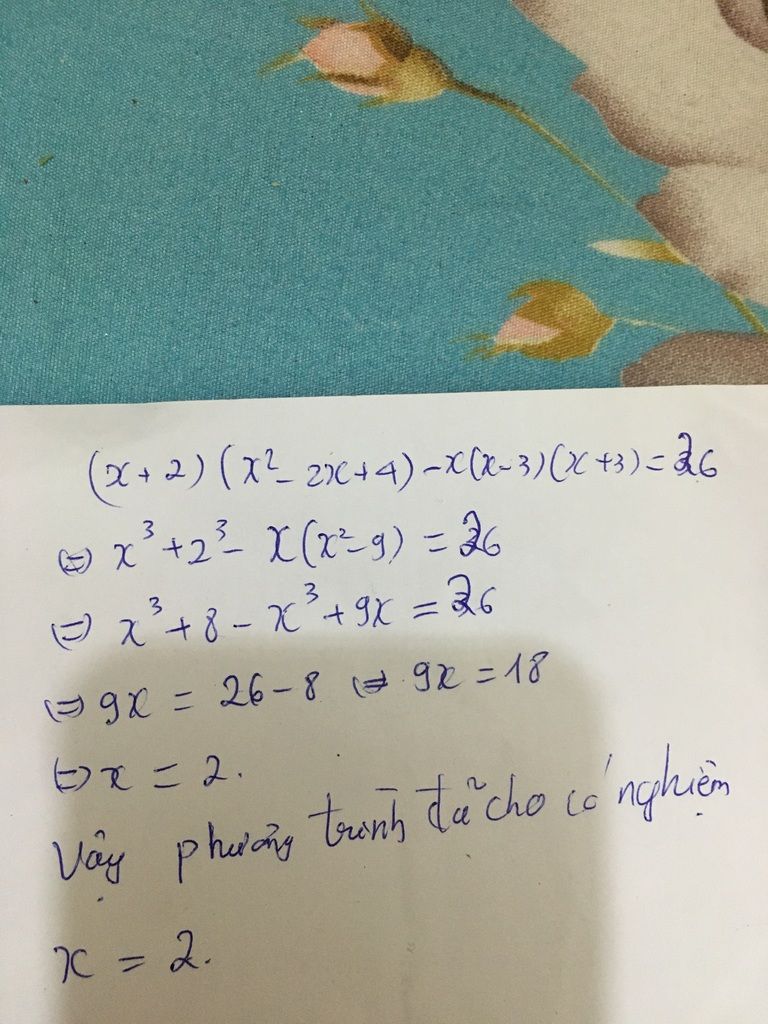 (x+2)(x²-2x+4)-x(x-3)(x+3)=26
⇔ x³+2³-x(x²-9)=26
⇔ x³+8-x³+9x=26
⇔ 9x=26-8 ⇔ 9x=18
⇔ x=2.
Vậy phương trình đã cho có nghiệm
x=2.